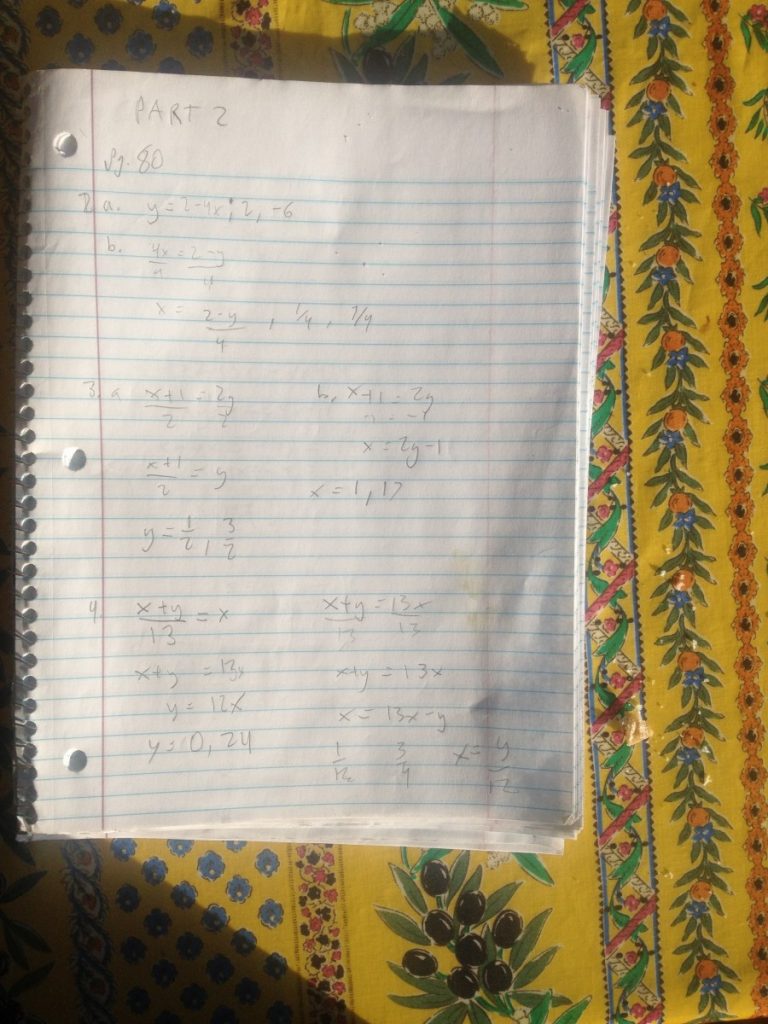 PART 2
Pg. 80
2. a. y = 2-4x; 2, -6
b. 4x/4 = 2-y/4
x = 2-y/4, 1/4, 7/4
3. a x+1/2 = 2y/2
x+1/2 = y
y = 1/2, 3/2
b, x+1 = 2y
x = 2y-1
x = 1, 17
4. x+y/13 = x
x+y = 13x
y = 12x
y = 0, 24
x+y/13 = 13x/13
x+y = 13x
x = 13x-y
1/12 3/4 x = y/12